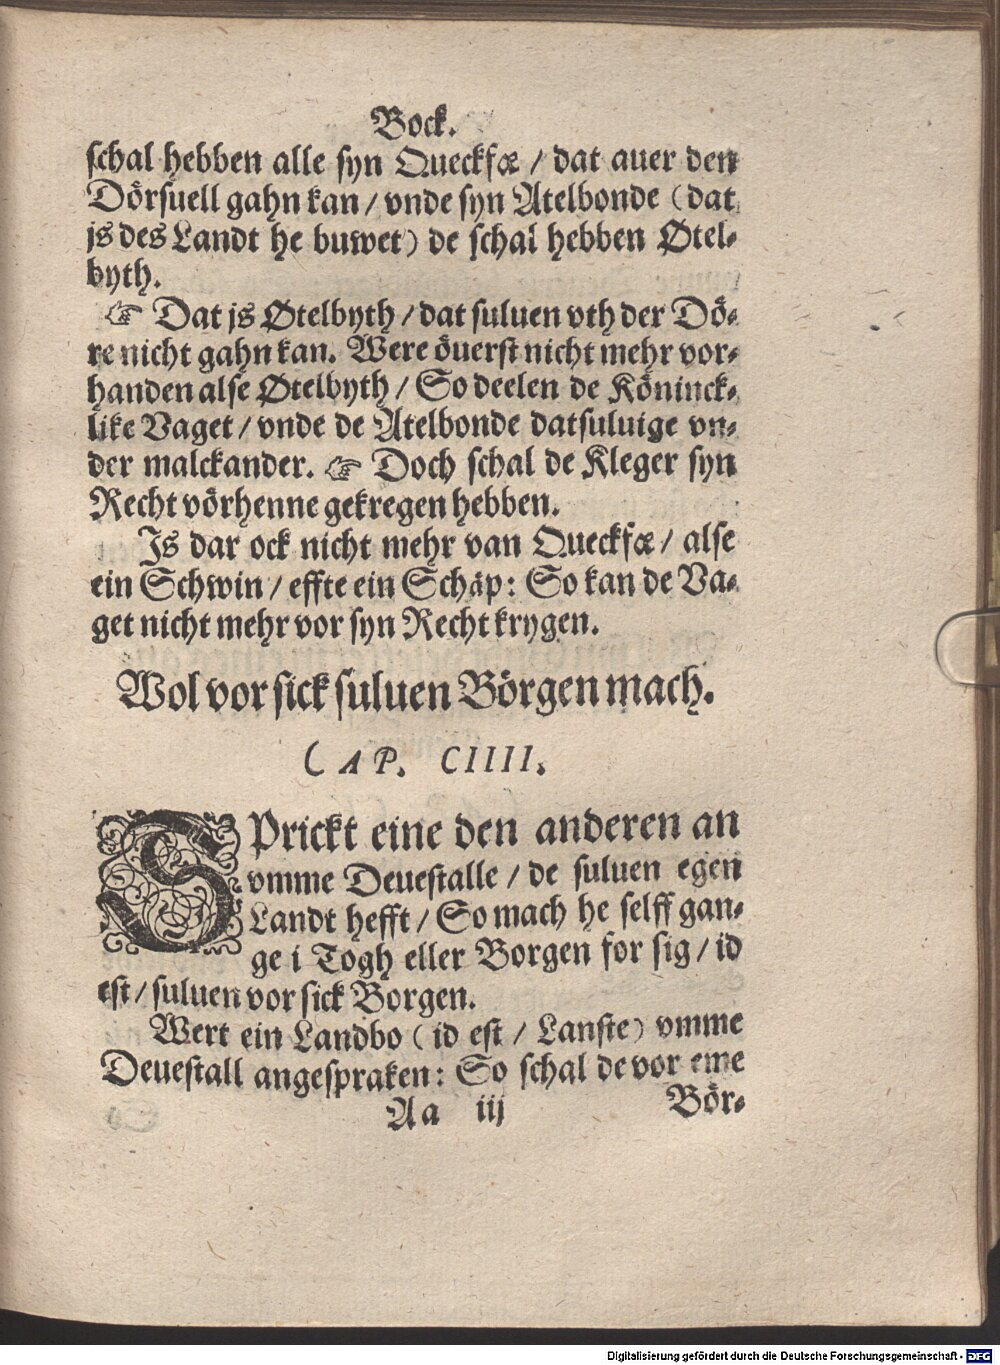 Bock.
schal hebben alle syn Queckfæ / dat auer den
Dörsuell gahn kan / vnde syn Atelbonde (dat
js des Landt he buwet) de schal hebben Øtel-
byth.
☞ Dat js Øtelbyth / dat suluen vth der Dö-
re nicht gahn kan. Were öuerst nicht mehr vor-
handen alse Øtelbyth / So deelen de Köninck-
like Vaget / vnde de Atelbonde datsuluige vn-
der malckander. ☞ Doch schal de Kleger syn
Recht vörhenne gekregen hebben.
Is dar ock nicht mehr van Queckfæ / alse
ein Schwin / effte ein Schäp: So kan de Va-
get nicht mehr vor syn Recht krygen.
Wol vor sick suluen Börgen mach.
CAP. CIIII.
SPrickt eine den anderen an
vmme Deuestalle / de suluen egen
Landt hefft / So mach he selff gan-
ge i Togh eller Borgen for sig / id
est / suluen vor sick Borgen.
Wert ein Landbo (id est / Lanste) vmme
Deuestall angespraken: So schal de vor eme
Aa iij Bör-
Digitalisierung gefördert durch die Deutsche Forschungsgemeinschaft - DFG